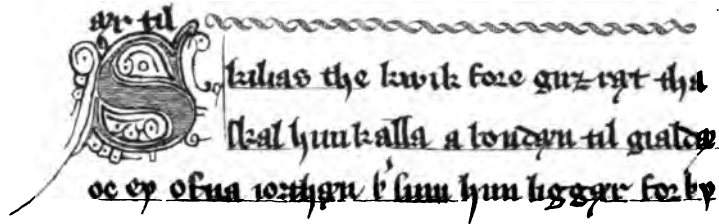 ær til
Skilias the kwik fore guz ræt tha
skal hun kalla a bondæn til gialdæ
oc ey ofna iorthæn sum hun liggær for